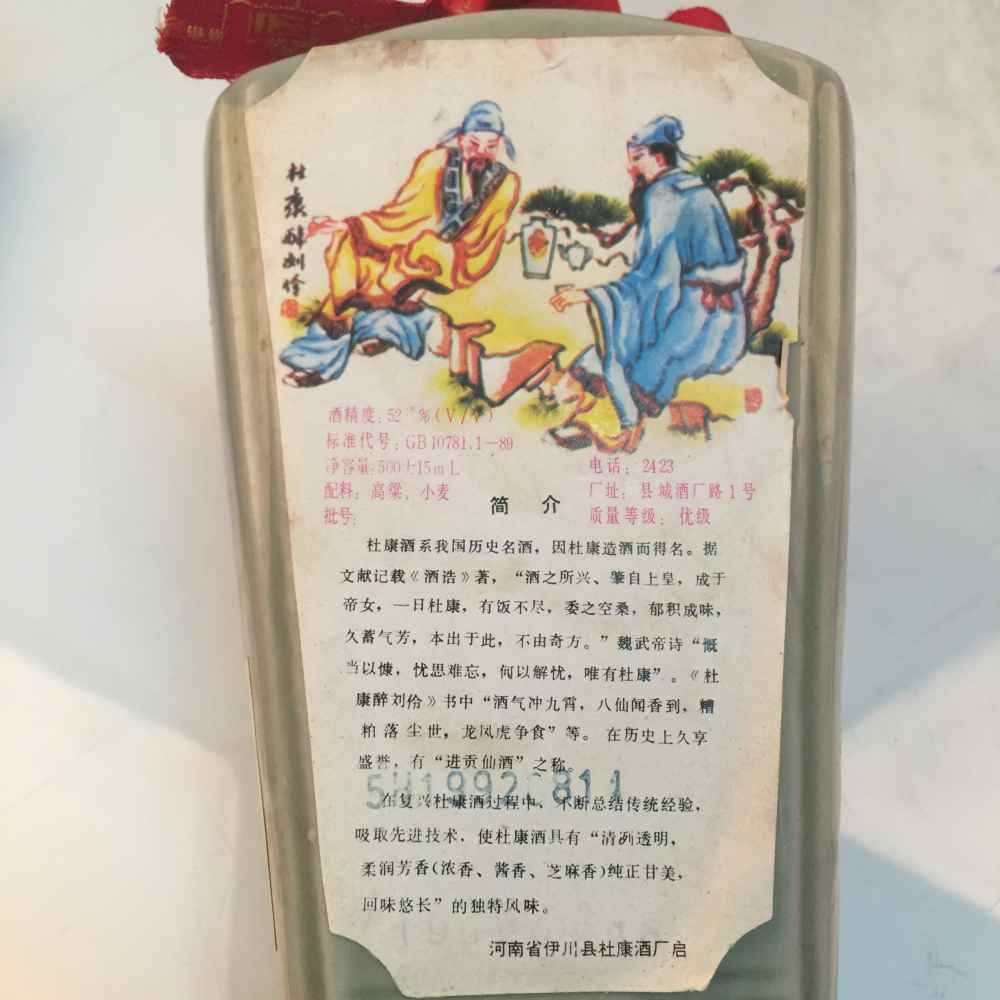 杜康醉刘伶
酒精度: 52°%(V/V)
标准代号: GB 10781.1—89
净容量: 500±15mL
电话: 2423
配料: 高粱、小麦
厂址: 县城酒厂路1号
批号:
质量等级: 优级
简 介
杜康酒系我国历史名酒，因杜康造酒而得名。据
文献记载《酒浩》著，“酒之所兴、肇自上皇，成于
帝女，一曰杜康，有饭不尽，委之空桑，郁积成味，
久蓄气芳，本出于此，不由奇方。”魏武帝诗“慨
当以慷，忧思难忘，何以解忧，唯有杜康”。《杜
康醉刘伶》书中“酒气冲九霄，八仙闻香到，糟
粕落尘世，龙凤虎争食”等。在历史上久享
盛誉，有“进贡仙酒”之称。
在复兴杜康酒过程中，不断总结传统经验，
吸取先进技术，使杜康酒具有“清冽透明，
柔润芳香(浓香、酱香、芝麻香)纯正甘美，
回味悠长”的独特风味。
河南省伊川县杜康酒厂启